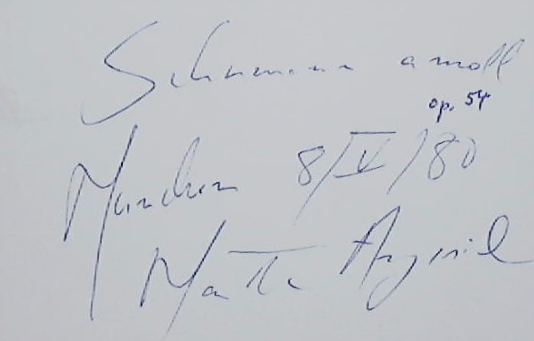 Schumann a moll
op. 54
München 8/V/80
Martha Argerich